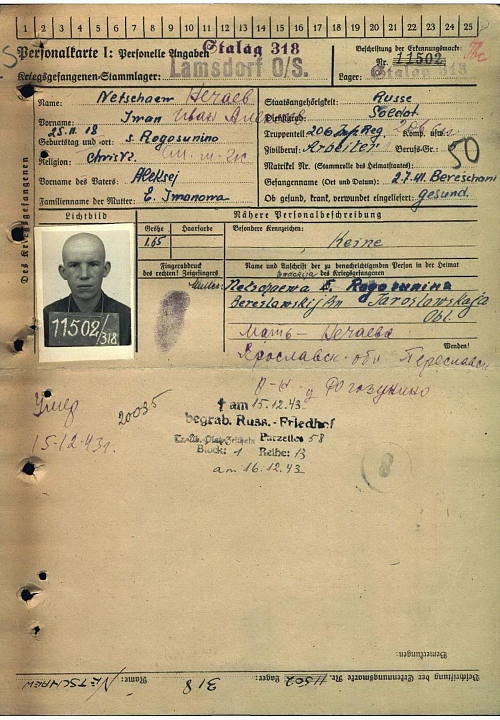 1 2 3 4 5 6 7 8 9 10 11 12 13 14 15 16 17 18 19 20 21 22 23 24 25
Personalkarte I: Personelle Angaben
Stalag 318
Kriegsgefangenen-Stammlager:
Lamsdorf O/S.
Beschriftung der Erkennungsmarke
Nr. 11502
Lager: Stalag 318
Des Kriegsgefangenen
Name: Netschaew Нечаев
Vorname: Iwan Иван
Geburtstag und -ort: 25.11.18 s. Rogosunino
Religion:
Vorname des Vaters: Aleksej
Familienname der Mutter: E. Iwanowa
Staatsangehörigkeit: Russe
Dienstgrad: Soldat
Truppenteil: 206 Inf. Reg. Komp. usw.:
Zivilberuf: Arbeiter Berufs-Gr.:
50
Matrikel Nr. (Stammrolle des Heimatstaates):
Gefangennahme (Ort und Datum): 2.7.41. Bereschani
Ob gesund, krank, verwundet eingeliefert: gesund.
Lichtbild
Nähere Personalbeschreibung
Größe
Haarfarbe
Besondere Kennzeichen:
1.65
Keine
Fingerabdruck
des rechten! Zeigefingers
Name und Anschrift der zu benachrichtigenden Person in der Heimat
des Kriegsgefangenen
Mutter: Netschaewa E. Rogosunino
Jaroslawskaja
Obl.
11502/318
Мать - Нечаева
Wenden!
Ярославск. обл. Переславск
р-н д. Рогозунино
Умер
15.12.43г.
20035
† am 15.12.43
begrab. Russ.-Friedhof
Parzelle: 58
Block: 1 Reihe: 13
am 16.12.43
8
Bemerkungen:
Beschriftung der Erkennungsmarke Nr. 11502 Lager: 318 Name: NETSCHAEW